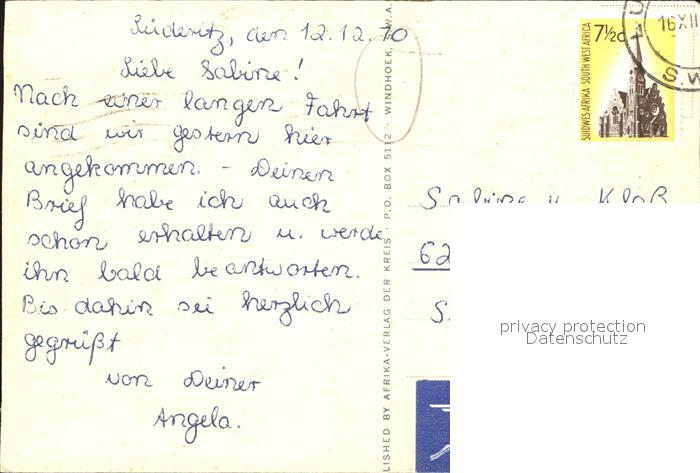 Lüderitz, den 12.12.70
Liebe Sabine!
Nach einer langen Fahrt
sind wir gestern hier
angekommen. - Deinen
Brief habe ich auch
schon erhalten u. werde
ihn bald beantworten.
Bis dahin sei herzlich
gegrüßt
von Deiner
Angela.
LISHED BY AFRIKA-VERLAG DER KREIS · P.O. BOX 5112 · WINDHOEK, S.W.A.
7½c
SUIDWES-AFRIKA · SOUTH WEST AFRICA
16XII
S.W
Sabine u. Kloß
62
S
privacy protection
Datenschutz